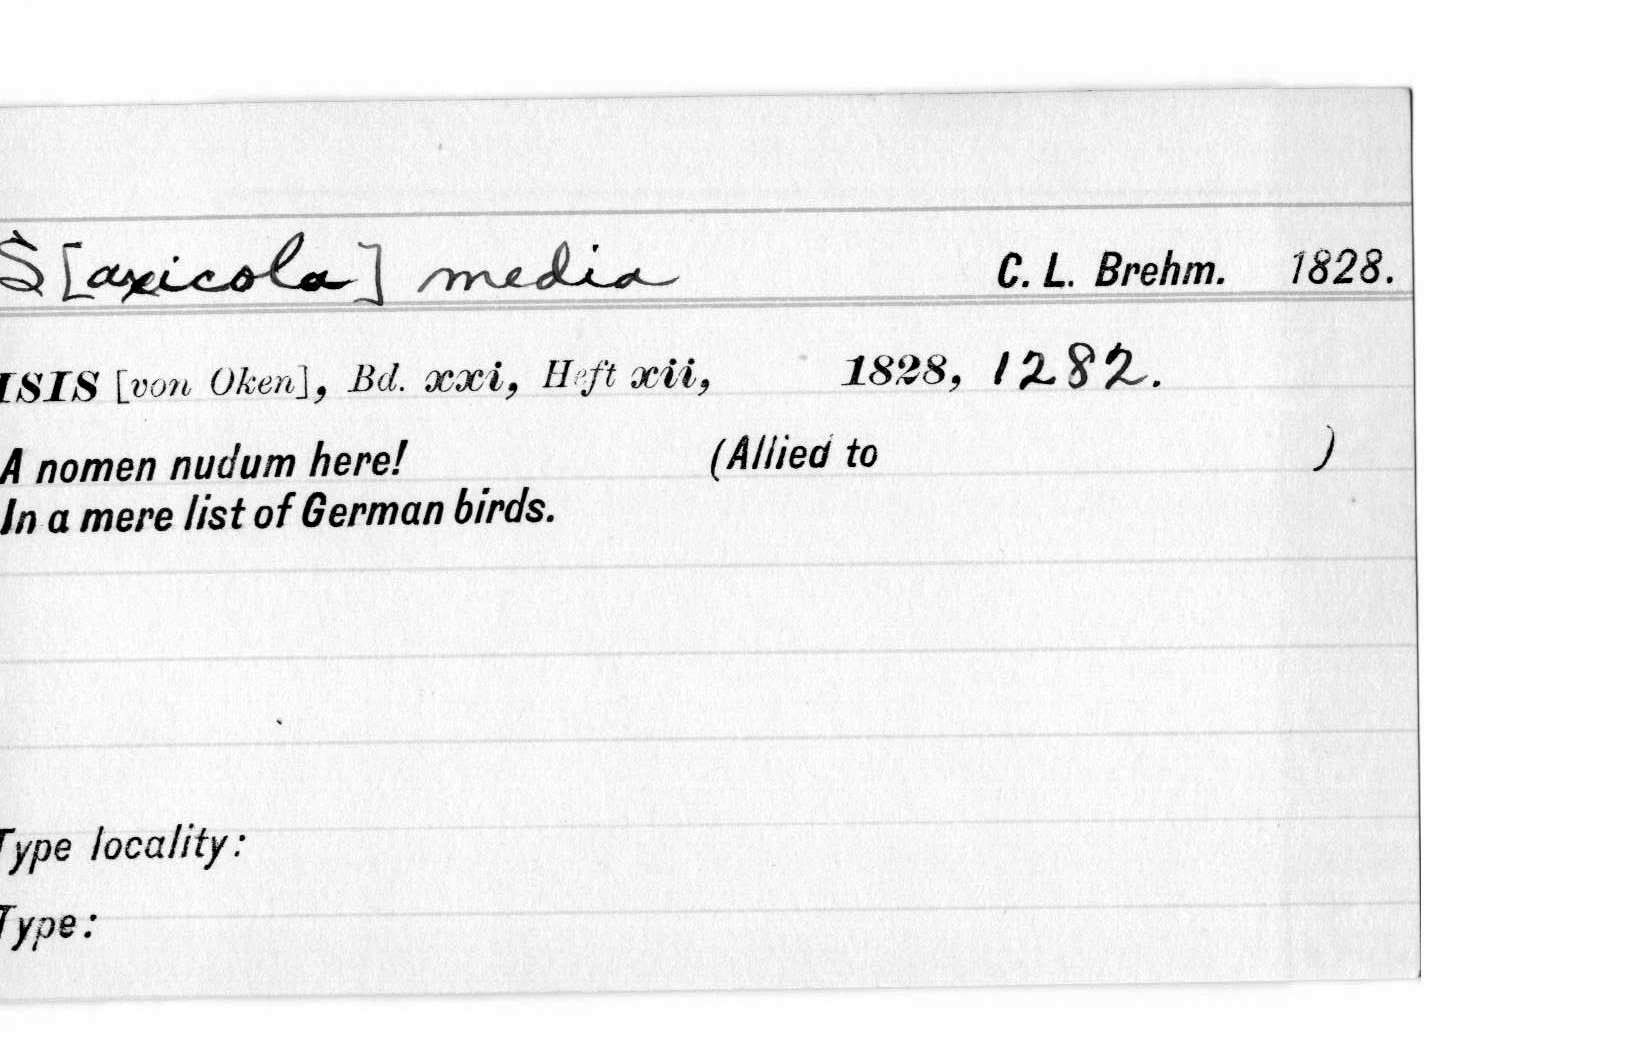 S[axicola] media C. L. Brehm. 1828.
ISIS [von Oken], Bd. xxi, Heft xii, 1828, 1282.
A nomen nudum here! (Allied to )
In a mere list of German birds.
Type locality:
Type: